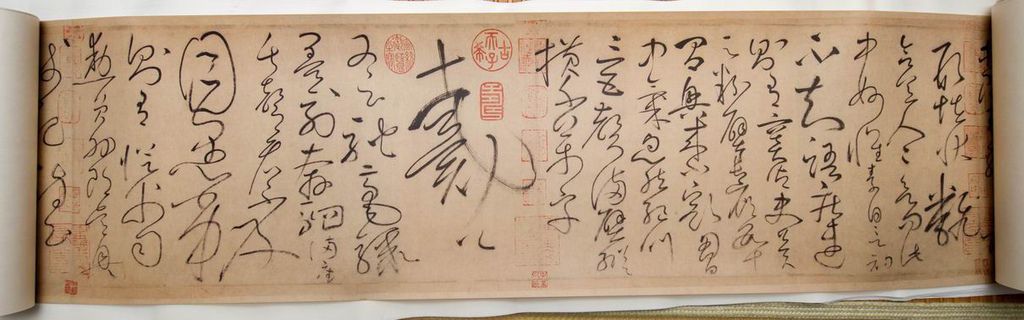 怪狀翻
合宜人人欲問此
中妙懷素自言初
不知語疾迅
則有竇御史冀
云粉壁長廊數十
間興來小豁胸
中氣忽然絕叫
三五聲滿壁縱
橫千萬字
戴公
又云馳毫驟
墨列奔駟滿座
失聲看不及
目愚劣
則有從父司
勳員外郎吳興